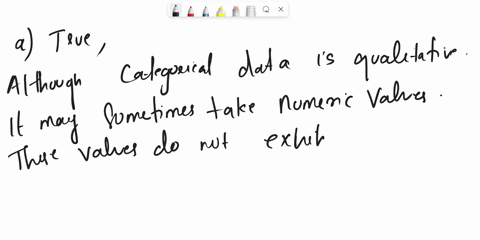 a) True,
Although Categorical data is qualitative.
It may Sometimes take numeric values.
These values do not exhib